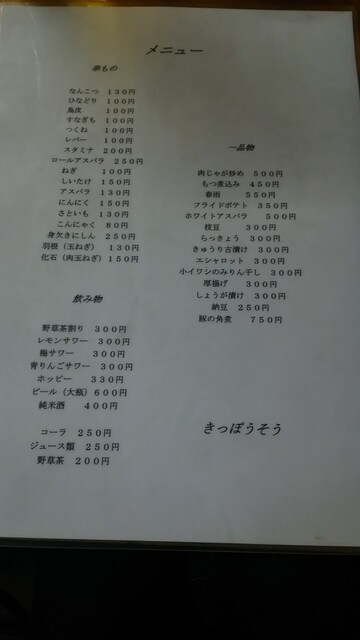 メニュー
串もの
なんこつ 130円
ひなどり 100円
鳥皮 100円
すなぎも 100円
つくね 100円
レバー 100円
スタミナ 200円
ロールアスパラ 250円
ねぎ 100円
しいたけ 150円
アスパラ 130円
にんにく 150円
さといも 130円
こんにゃく 80円
身欠きにしん 250円
羽根（玉ねぎ） 130円
化石（肉玉ねぎ）150円
飲み物
野草茶割り 300円
レモンサワー 300円
梅サワー 300円
青りんごサワー 300円
ホッピー 330円
ビール（大瓶）600円
純米酒 400円
コーラ 250円
ジュース類 250円
野草茶 200円
一品物
肉じゃが炒め 500円
もつ煮込み 450円
春雨 550円
フライドポテト 350円
ホワイトアスパラ 500円
枝豆 300円
らっきょう 300円
きゅうり古漬け 300円
エシャロット 300円
小イワシのみりん干し 300円
厚揚げ 300円
しょうが漬け 300円
納豆 250円
豚の角煮 750円
きっぽうそう